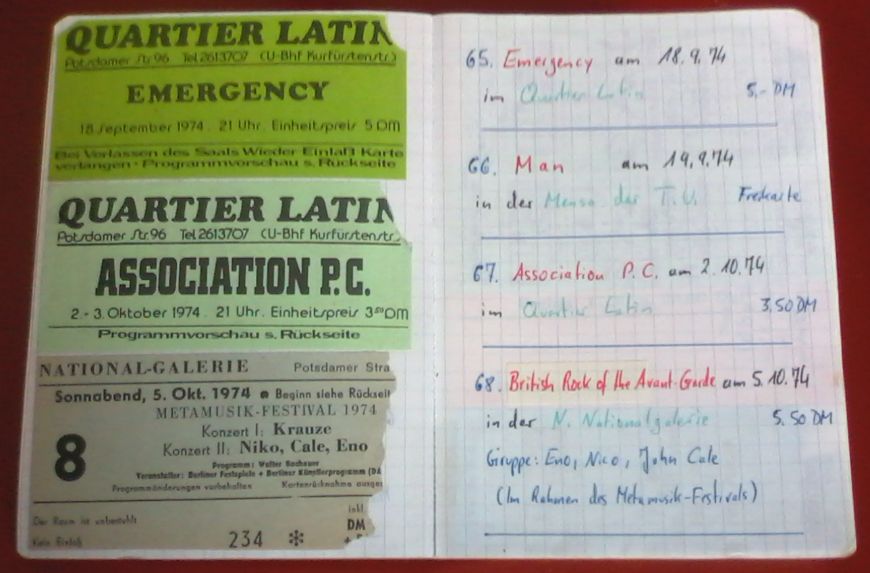 QUARTIER LATIN
Potsdamer Str. 96 Tel. 2613707 (U-Bhf Kurfürstenstr.)
EMERGENCY
18. September 1974. 21 Uhr. Einheitspreis 5 DM
Bei Verlassen des Saals Wieder Einlaß Karte
verlangen · Programmvorschau s. Rückseite
QUARTIER LATIN
Potsdamer Str. 96 Tel. 2613707 (U-Bhf Kurfürstenstr.)
ASSOCIATION P.C.
2.-3. Oktober 1974. 21 Uhr. Einheitspreis 3,50 DM
Programmvorschau s. Rückseite
NATIONAL-GALERIE Potsdamer Stra
Sonnabend, 5. Okt. 1974 ● Beginn siehe Rückseit
METAMUSIK-FESTIVAL 1974
8
Konzert I: Krauze
Konzert II: Niko, Cale, Eno
Programm: Walter Bachauer
Veranstalter: Berliner Festspiele + Berliner Künstlerprogramm (DA
Programmänderungen vorbehalten Kartenrücknahme ausges
Der Raum ist unbestuhlt
inkl.
DM
Kein Einlaß
234 ✻
65. Emergency am 18.9.74
im Quartier Latin 5,- DM
66. Man am 19.9.74
in der Mensa der T.U. Freikarte
67. Association P.C. am 2.10.74
im Quartier Latin 3,50 DM
68. British Rock of the Avant-Garde am 5.10.74
in der N. Nationalgalerie 5.50 DM
Gruppe: Eno, Nico, John Cale
(Im Rahmen des Metamusik-Festivals)